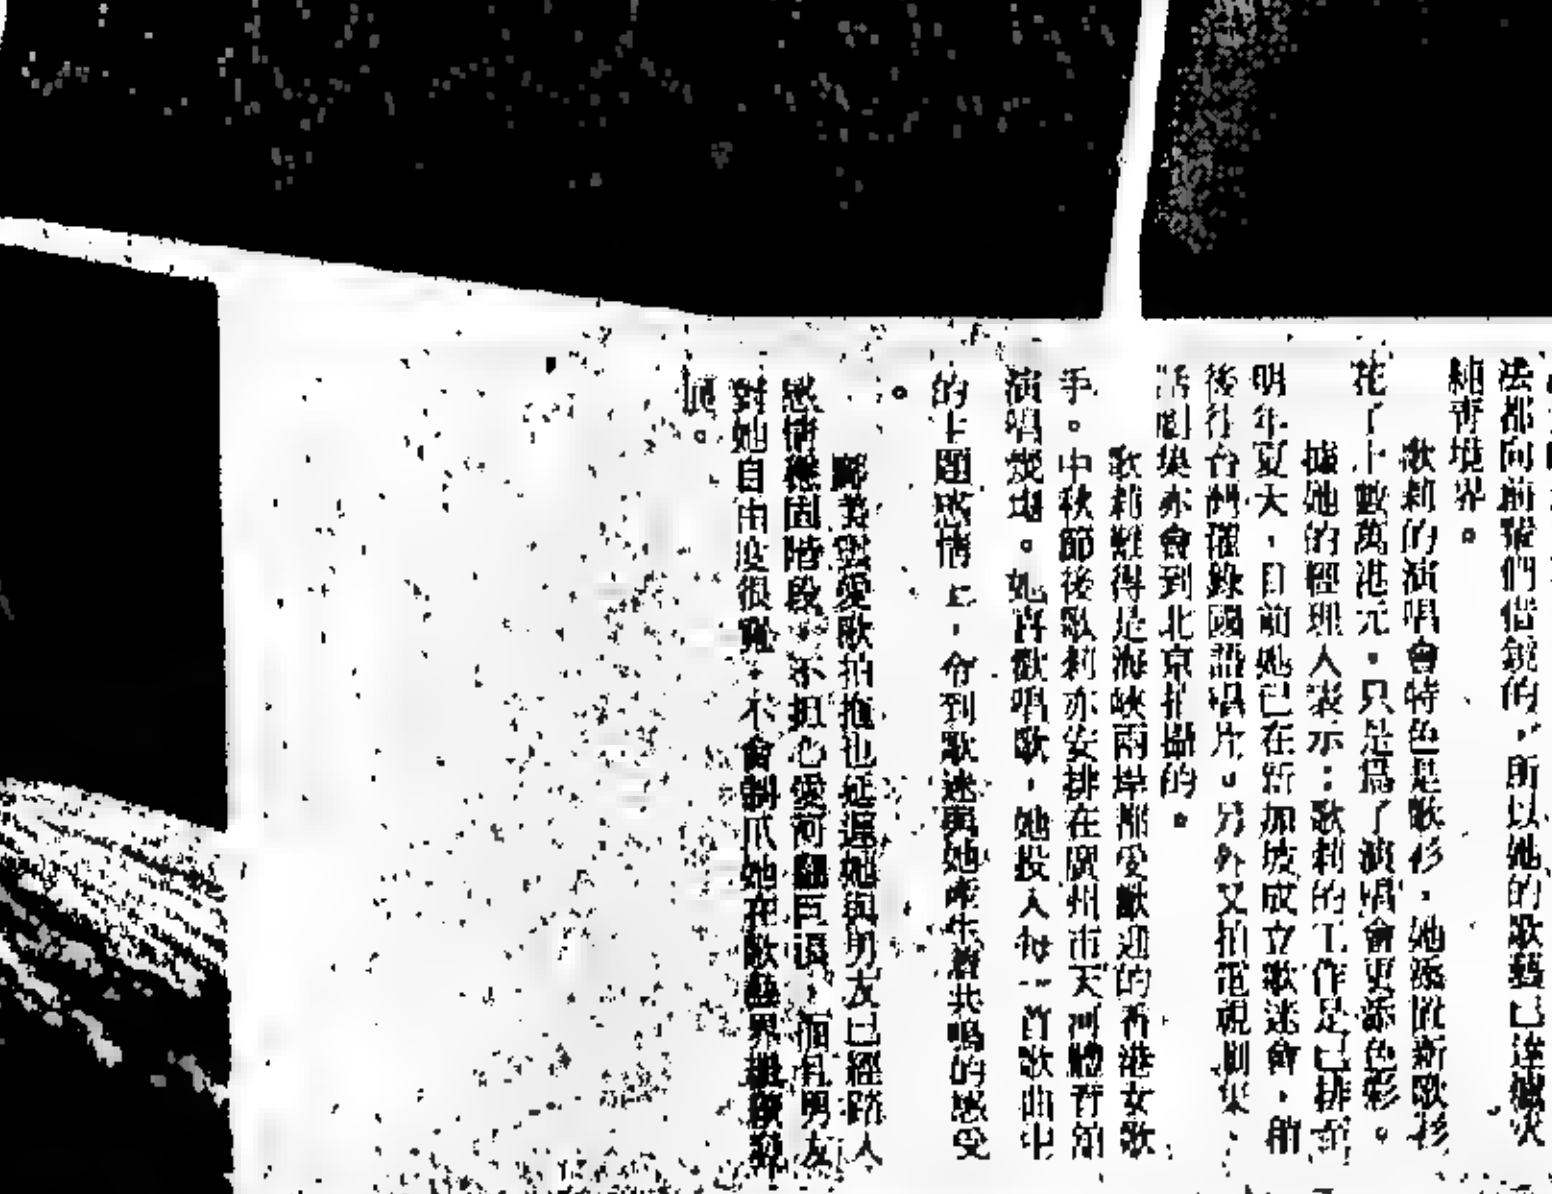 法都向前輩們借鏡的，所以她的歌藝已達爐火
純青境界。
歌莉的演唱會特色是歌衫，她添置新歌衫
花了十數萬港元，只是為了演唱會更添色彩。
據她的經理人表示：歌莉的工作是已排至
明年夏天，目前她已在新加坡成立歌迷會，稍
後往台灣灌錄國語唱片。另外又拍電視劇集，
話劇集亦會到北京拍攝的。
歌莉難得是海峽兩岸都受歡迎的香港女歌
手。中秋節後歌莉亦安排在廣州市天河體育館
演唱幾場。她喜歡唱歌，她投入每一首歌曲中
的主題感情上，令到歌迷與她產生着共鳴的感受
。
鄺美雲愛歌拍拖也延遲她與男友已經踏人
感情穩固階段，不担心愛河翻巨浪，個男友
對她自由度很寬，不會制爪她在歌藝界
展。